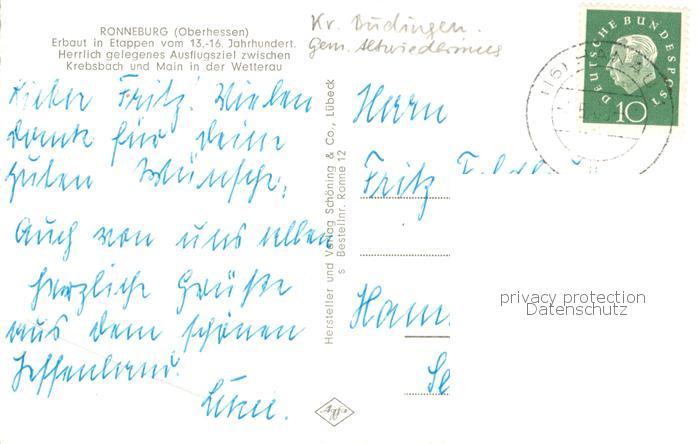 RONNEBURG (Oberhessen)
Erbaut in Etappen vom 13.-16. Jahrhundert.
Herrlich gelegenes Ausflugsziel zwischen
Krebsbach und Main in der Wetterau
Kr. Büdingen.
Gem. Altwiedermus
Lieber Fritz! Vielen
Dank für deine
guten Wünsche,
Auch von uns allen
herzliche Grüße
aus dem schönen
Hessenland.
Hersteller und Verlag Schöning & Co., Lübeck
s Bestellnr. Ronne 12
Agfa
DEUTSCHE BUNDESPOST
10
(16)
Herrn
Fritz
privacy protection
Datenschutz